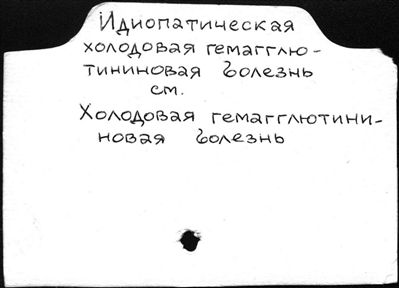 Идиопатическая
холодовая гемагглю-
тининовая болезнь
см.
Холодовая гемагглютини-
новая болезнь